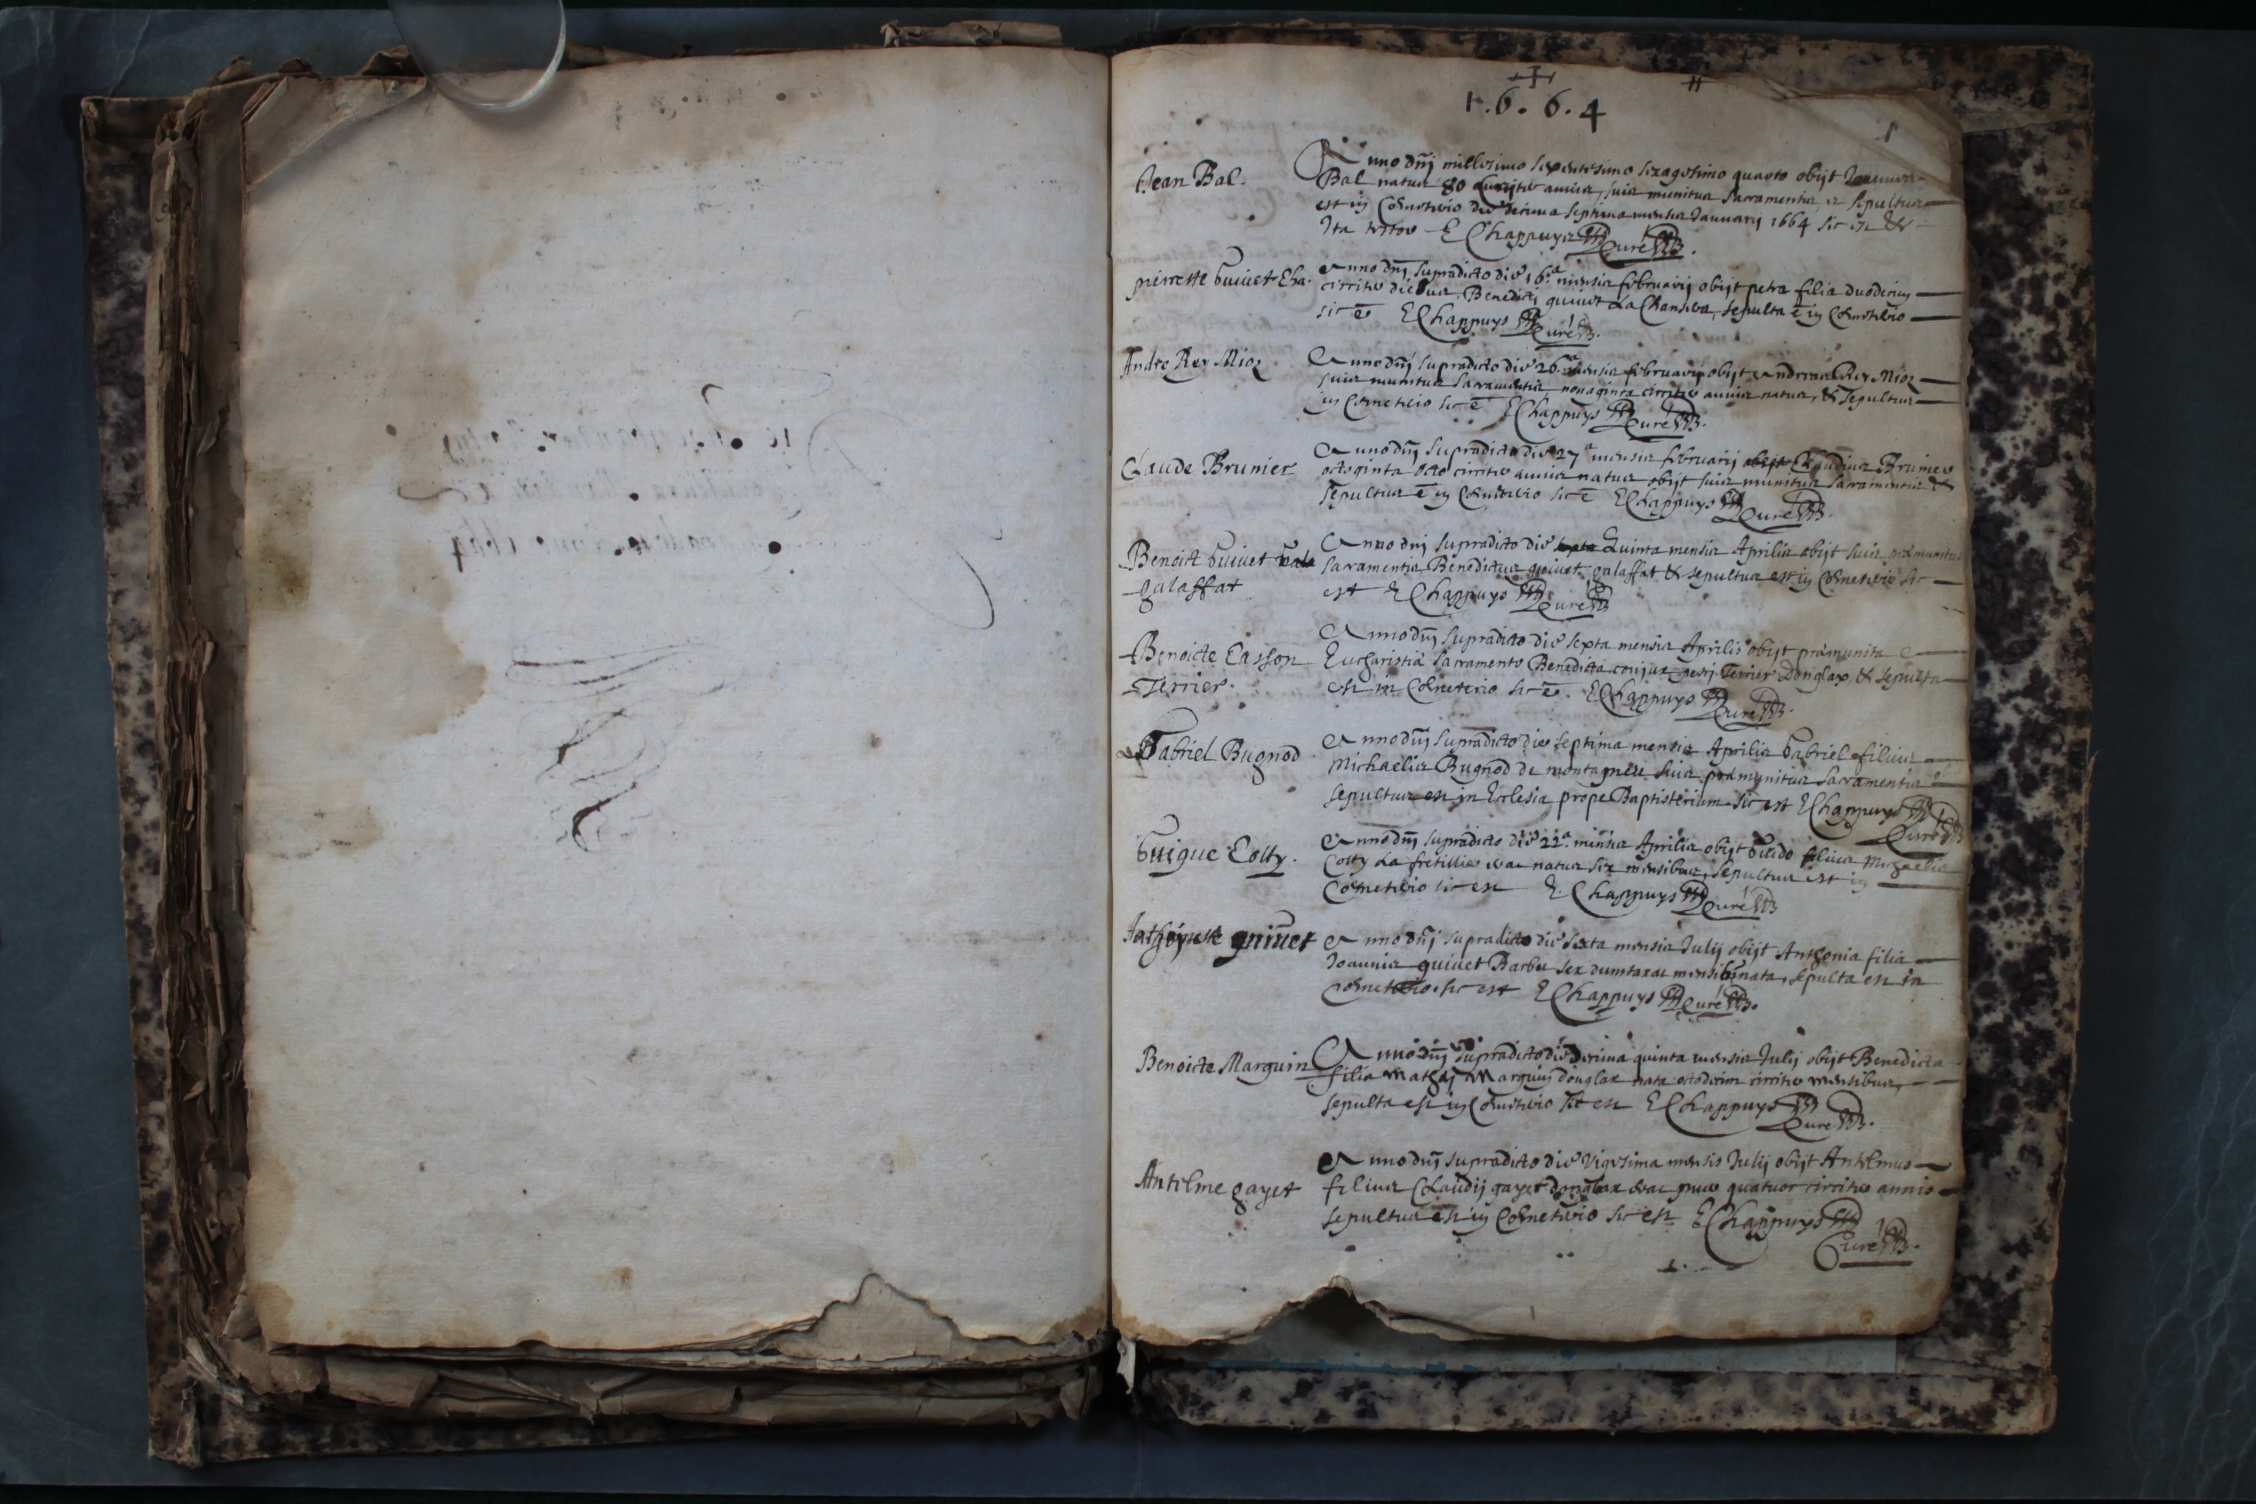 1.6.6.4
1
Jean Bal.
Anno dnj millesimo sexentesimo sexagesimo quarto obijt Joannes
Bal natus 80 circiter annis, suis munitus sacramentis et sepultus
est in Cœmeterio die decima septima mensis Januarij 1664 sic est &
Ita testor E Chappuys Curé
pierrette guiuet Cha.
Anno dnj supradicto die 16.a mensis februarij obijt petra filia duodecim
circiter dierum Benedictj guiuet La Chanseva, sepulta ē in Cœmeterio
sic ē E Chappuys Curé
Andre Rey Mioz
Anno dnj supradicto die 26.a mensis februarij obijt Andreas Rey Mioz
suis munitus sacramentis nonaginta circiter annis natus, & sepultus
in Cœmeterio sic ē E Chappuys Curé
Claude Brunier
Anno dnj supradicto die 27a mensis februarij obijt Claudius Brunier
octoginta octo circiter annis natus obijt suis munitus sacramentis &
sepultus ē in Cœmeterio sic ē E Chappuys Curé
Benoict guiuet
galaffat
Anno dnj supradicto die sexta Quinta mensis Aprilis obijt suis præmunitus
sacramentis Benedictus guiuet galaffat & sepultus est in Cœmeterio sic
est E Chappuys Curé
Benoicte Casson
Terrier.
Anno dnj supradicto die sexta mensis Aprilis obijt præmunita
Eucharistiæ sacramento Benedicta conjux petrj Terrier Donglax, & sepulta
est in Cœmeterio sic ē. E Chappuys Curé
Gabriel Bugnod
Anno dnj supradicto die septima mensis Aprilis Gabriel filius
Michaelis Bugnod de montagnieu suis præmunitus sacramentis &
sepultus est in Ecclesia prope Baptisterium sic est E Chappuys Curé
Guigue Cotty.
Anno dnj supradicto die 22.a mensis Aprilis obijt Guido filius Michaelis
Cotty La fretillie natus sex mensibus, sepultus est in
Cœmeterio sic est E. Chappuys Curé
guiuet
Anno dnj supradicto die sexta mensis Julij obijt Anthonia filia
Joannis guiuet Barbu sex dumtaxat mensibus nata, sepulta est in
Cœmeterio. sic est E Chappuys Curé
Benoicte Marguin
Anno dnj supradicto die decima quinta mensis Julij obijt Benedicta
filia Mathæj Marguin donglax nata octodecim circiter mensibus,
sepulta est in Cœmeterio sic est E Chappuys Curé
Antelme gayet
Anno dnj supradicto die Vigesima mensis Julij obijt Antelmus
filius Claudij gayet donglax puer quatuor circiter annis
sepultus est in Cœmeterio sic est E Chappuys
Curé
1.